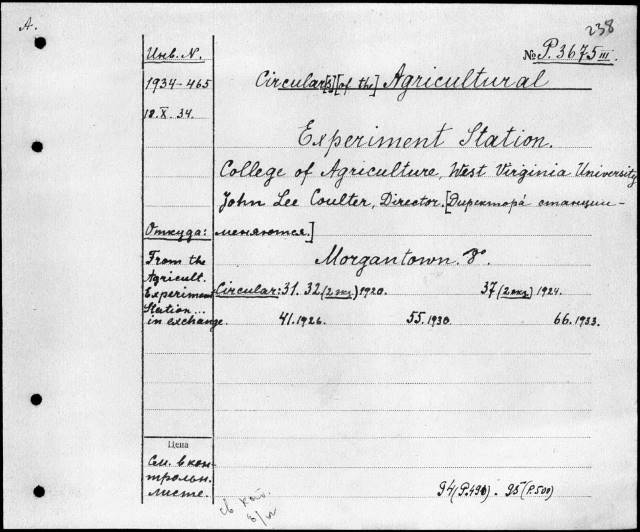 A.
238
Инв. N.
№ P.3675 III.
1934-465
Circular[s][of the] Agricultural
18.X.34.
Experiment Station.
College of Agriculture, West Virginia University
John Lee Coulter, Director. [Директора станции-
Откуда: меняются.]
From the Agricult. Experiment Station... in exchange.
Morgantown. 8°.
Circular: 31. 32 (2 экз.) 1920. 37 (2 экз.) 1924.
41. 1926. 55. 1930. 66. 1933.
Цена
См. в кон-
трольн.
листе.
94 (P.490). - 95 (P.500)